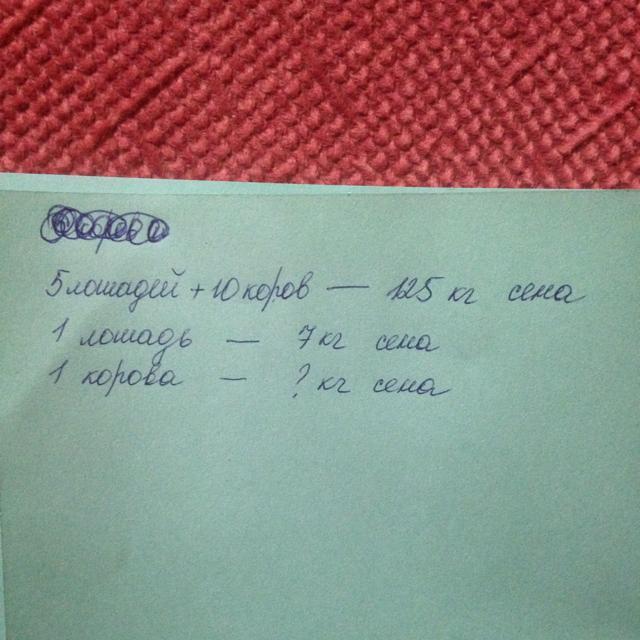 5 лошадей + 10 коров — 125 кг сена
1 лошадь — 7 кг сена
1 корова — ? кг сена